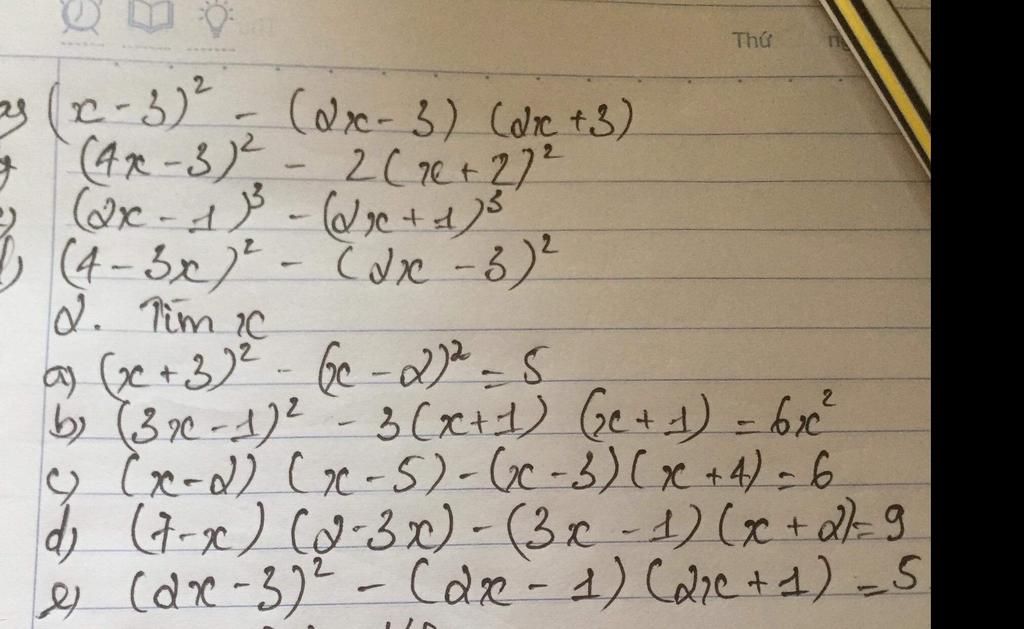 Thứ
(x - 3)² - (2x - 3) (2x + 3)
(4x - 3)² - 2(x + 2)²
(2x - 1)³ - (2x + 1)³
(4 - 3x)² - (2x - 3)²
2. Tìm x
a) (x + 3)² - (x - 2)² = 5
b) (3x - 1)² - 3(x + 1) (x + 1) = 6x²
c) (x - 2) (x - 5) - (x - 3) (x + 4) = 6
d) (7 - x) (2 - 3x) - (3x - 1) (x + 2) = 9
e) (2x - 3)² - (2x - 1) (2x + 1) = 5